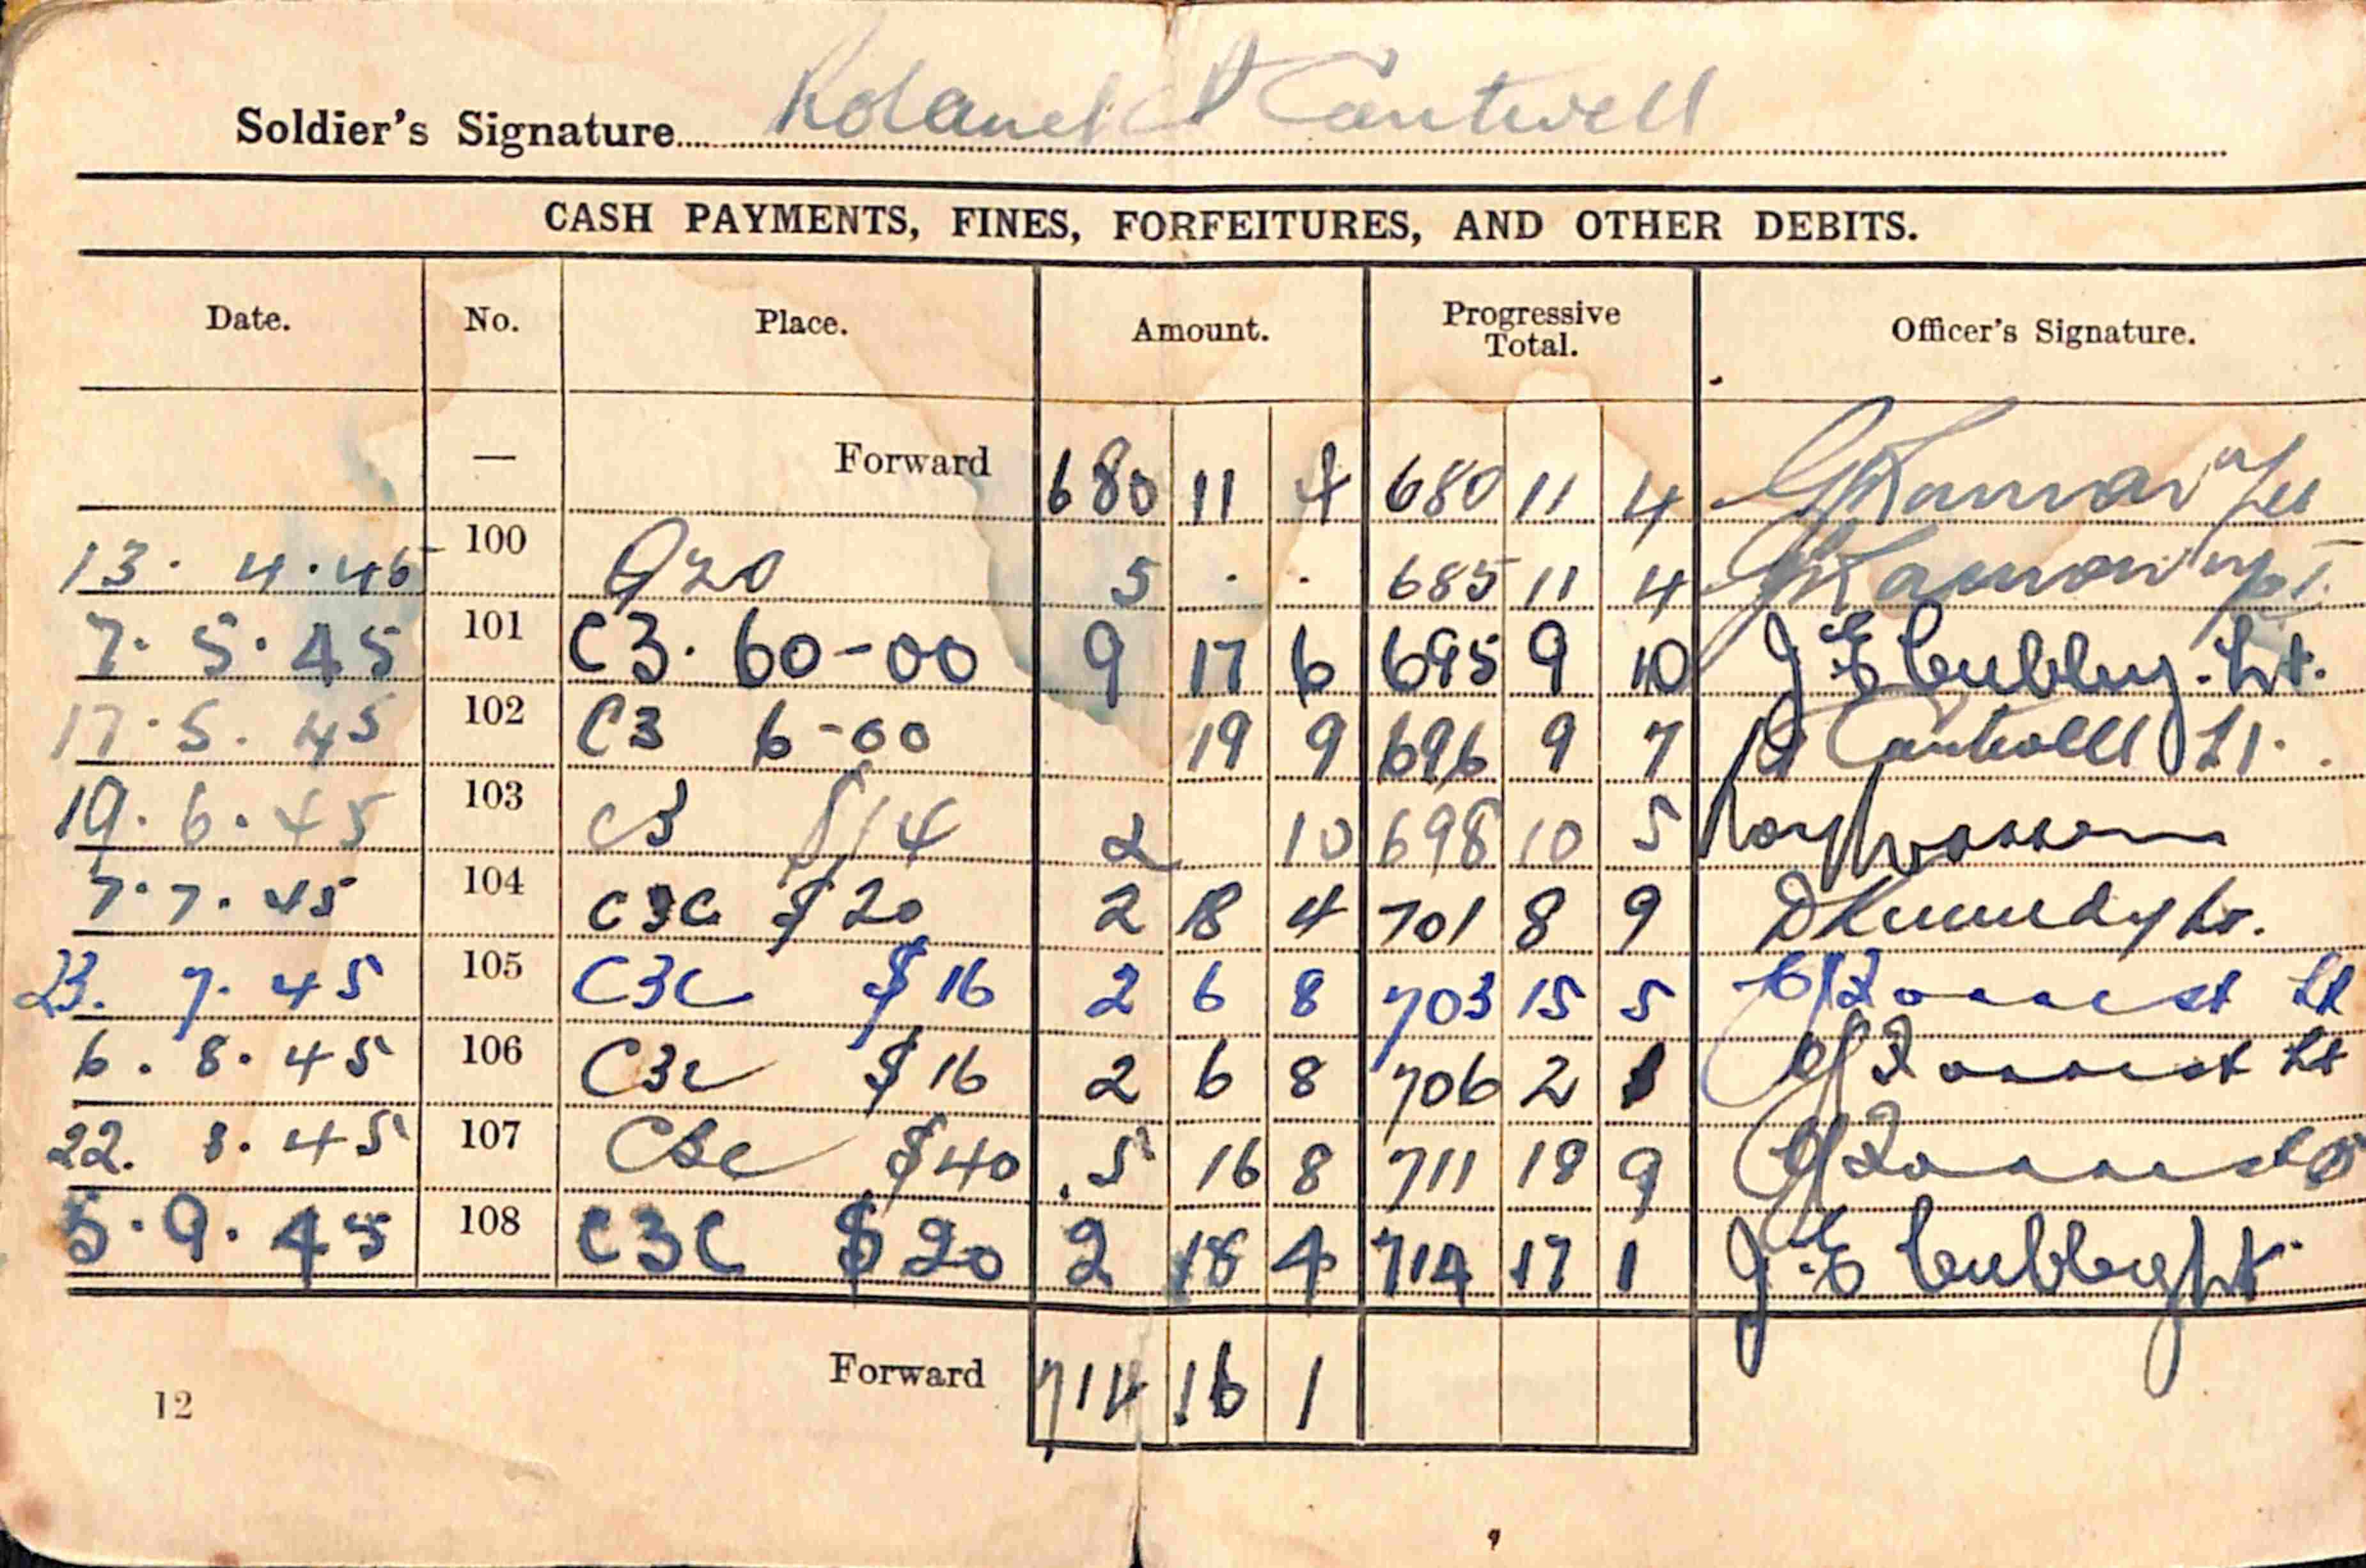 Soldier's Signature Roland A Cantwell
CASH PAYMENTS, FINES, FORFEITURES, AND OTHER DEBITS.
Date. No. Place. Amount. Progressive Total. Officer's Signature.
— Forward 680 11 4 680 11 4
13. 4. 45 100 5 . . 685 11 4
7. 5. 45 101 C3. 60-00 9 17 6 695 9 10 J E Cubbley. Lt.
17. 5. 45 102 C3 6-00 19 9 696 9 7 Cantwell Lt.
19. 6. 45 103 C3 $14 2 10 698 10 5
7. 7. 45 104 C3C $20 2 18 4 701 8 9 D Kennedy Lt.
23. 7. 45 105 C3C $16 2 6 8 703 15 5 Forrest Lt
6. 8. 45 106 C3C $16 2 6 8 706 2 1 Forrest Lt
22. 8. 45 107 C3C $40 5 16 8 711 18 9 Forrest
5. 9. 45 108 C3C $20 2 18 4 714 17 1 J. E Cubbley Lt.
Forward 714 16 1
12